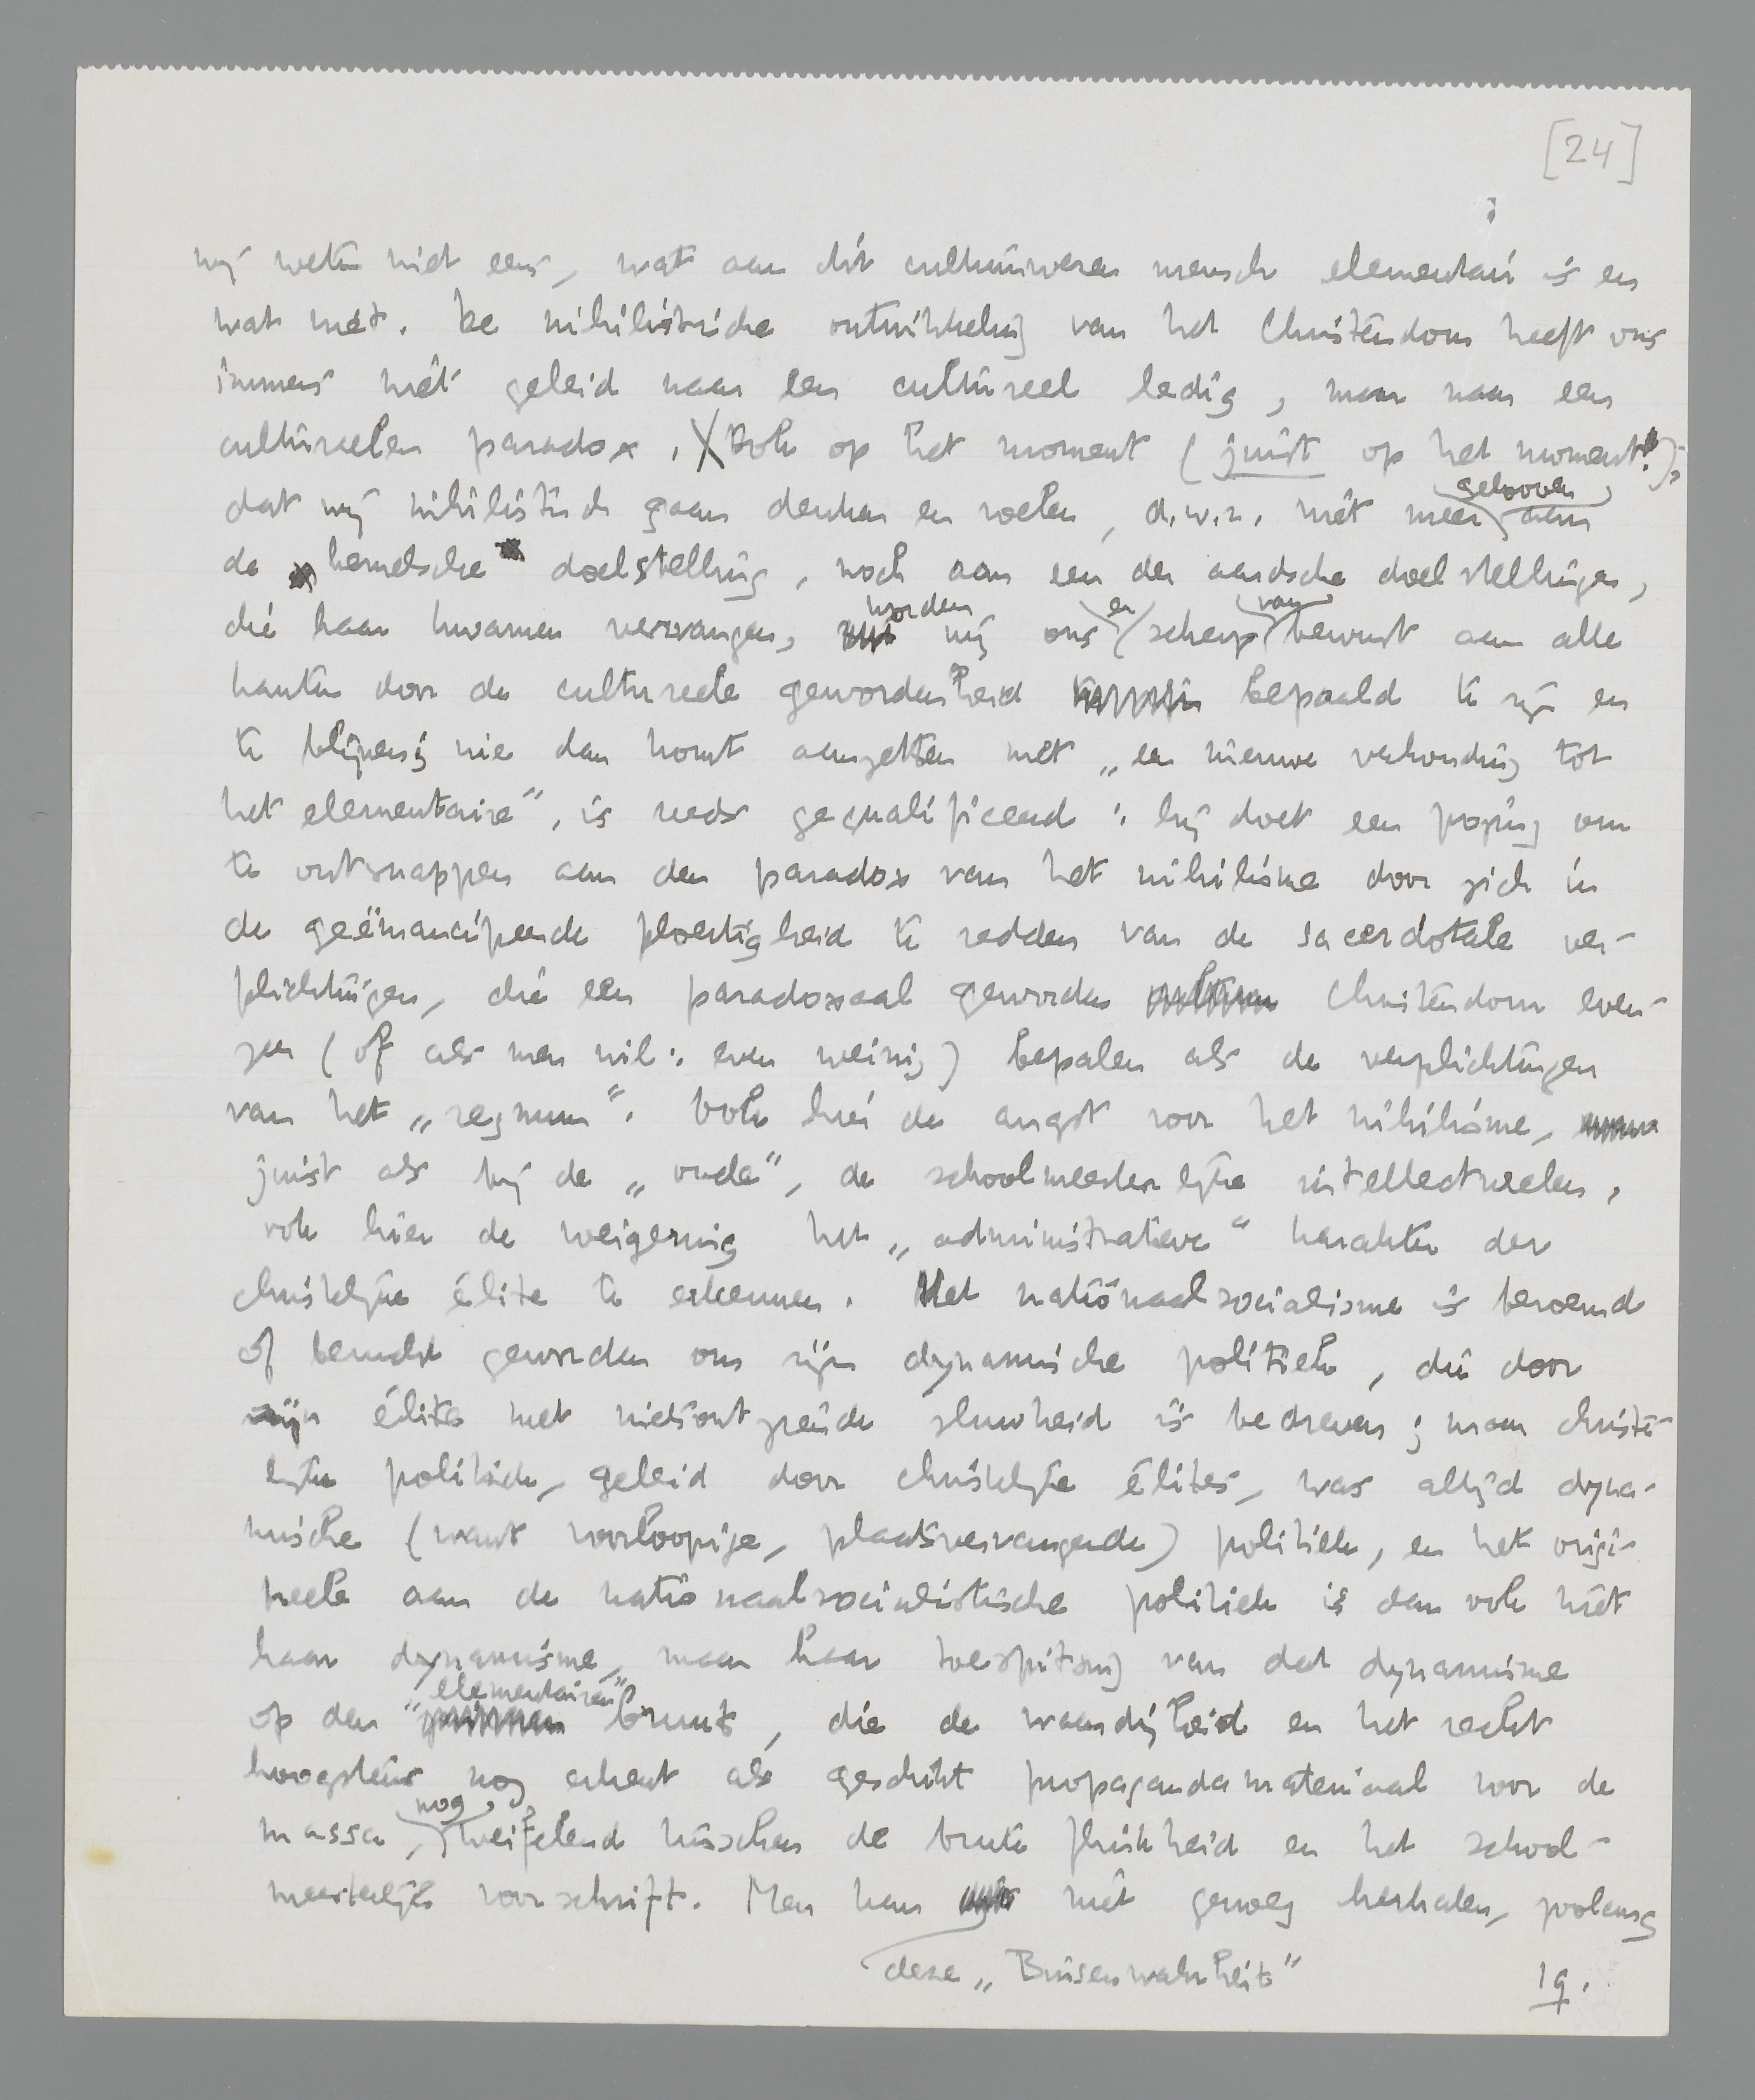 [24]
wij weten niet eens, wat aan dit cultuurwezen mensch elementair is en
wat niet. De nihilistische ontwikkeling van het Christendom heeft ons
immers niet geleid naar een cultureel ledig, maar naar een
cultureelen paradox. Ook op het moment (juist op het moment!),
dat wij nihilistisch gaan denken en voelen, d.w.z. niet meer gelooven aan
de hemelsche doelstelling, noch aan een der aardsche doelstellingen,
die haar kwamen vervangen, worden wij ons er scherp van bewust aan alle
kanten door de cultureele gewordenheid bepaald te zijn en
te blijven; wie dan komt aanzetten met „een nieuwe verhouding tot
het elementaire”, is reeds gequalificeerd: hij doet een poging om
te ontsnappen aan den paradox van het nihilisme door zich in
de geëmancipeerde ploertigheid te redden van de sacerdotale ver-
plichtingen, die een paradoxaal geworden Christendom even-
zeer (of als men wil: even weinig) bepalen als de verplichtingen
van het „regnum”. Ook hier de angst voor het nihilisme,
juist als bij de „oude”, de schoolmeesterlijke intellectueelen,
ook hier de weigering het „administratieve” karakter der
christelijke élite te erkennen. Het nationaalsocialisme is beroemd
of berucht geworden om zijn dynamische politiek, die door
zijn élites met nietsontziende sluwheid is bedreven; maar christe-
lijke politiek, geleid door christelijke élites, was altijd dyna-
mische (want voorloopige, plaatsvervangende) politiek, en het origi-
neele aan de nationaalsocialistische politiek is dan ook niet
haar dynamisme, maar haar toespitsing van dat dynamisme
op den “elementairen” bruut, die de waardigheid en het recht
hoogstens nog erkent als geschikt propagandamateriaal voor de
massa, nog weifelend tusschen de brute flinkheid en het school-
meesterlijke voorschrift. Men kan niet genoeg herhalen, zoolang
deze „Binsenwahrheit”
19.